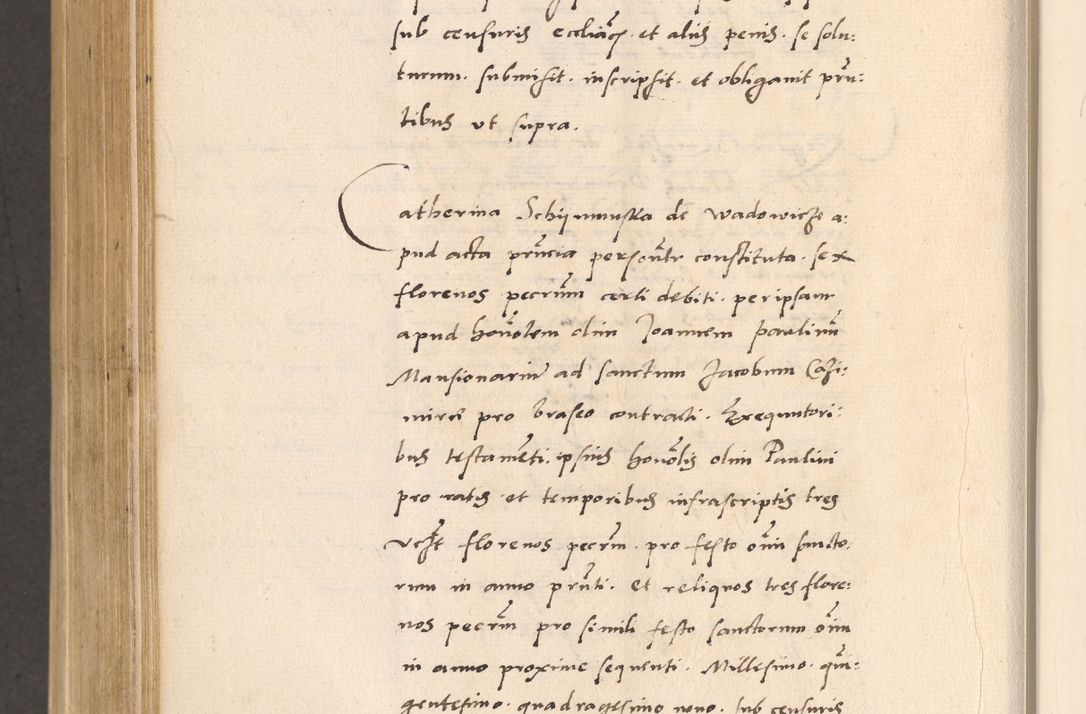 sub censuris eccliacis et aliis penis. se solu:
turum. submisit. inscripsit. et obligavit prñ:
tibus ut supra.
Catherina Schijmunska de Wadowicze a:
pud acta prñcia personlr constituta. sex
florenos pecrum certi debiti. per ipsam
apud honoblem olim Joannem paulinũ
Mansionariũ ad sanctum Jacobum Casi:
mirie pro braseo contracti. Exequutori:
bus testamẽti. ipsius honoblis olim Paulini
pro ratis et temporibus infrascriptis tres
vczt florenos pecrm. pro festo oĩm sancto:
rum in anno prñti. Et reliquos tres flore:
nos pecrm pro simili festo sanctorum oĩm
in anno proxime sequenti. Millesimo. quin:
gentesimo. quadragesimo nono. sub censuris